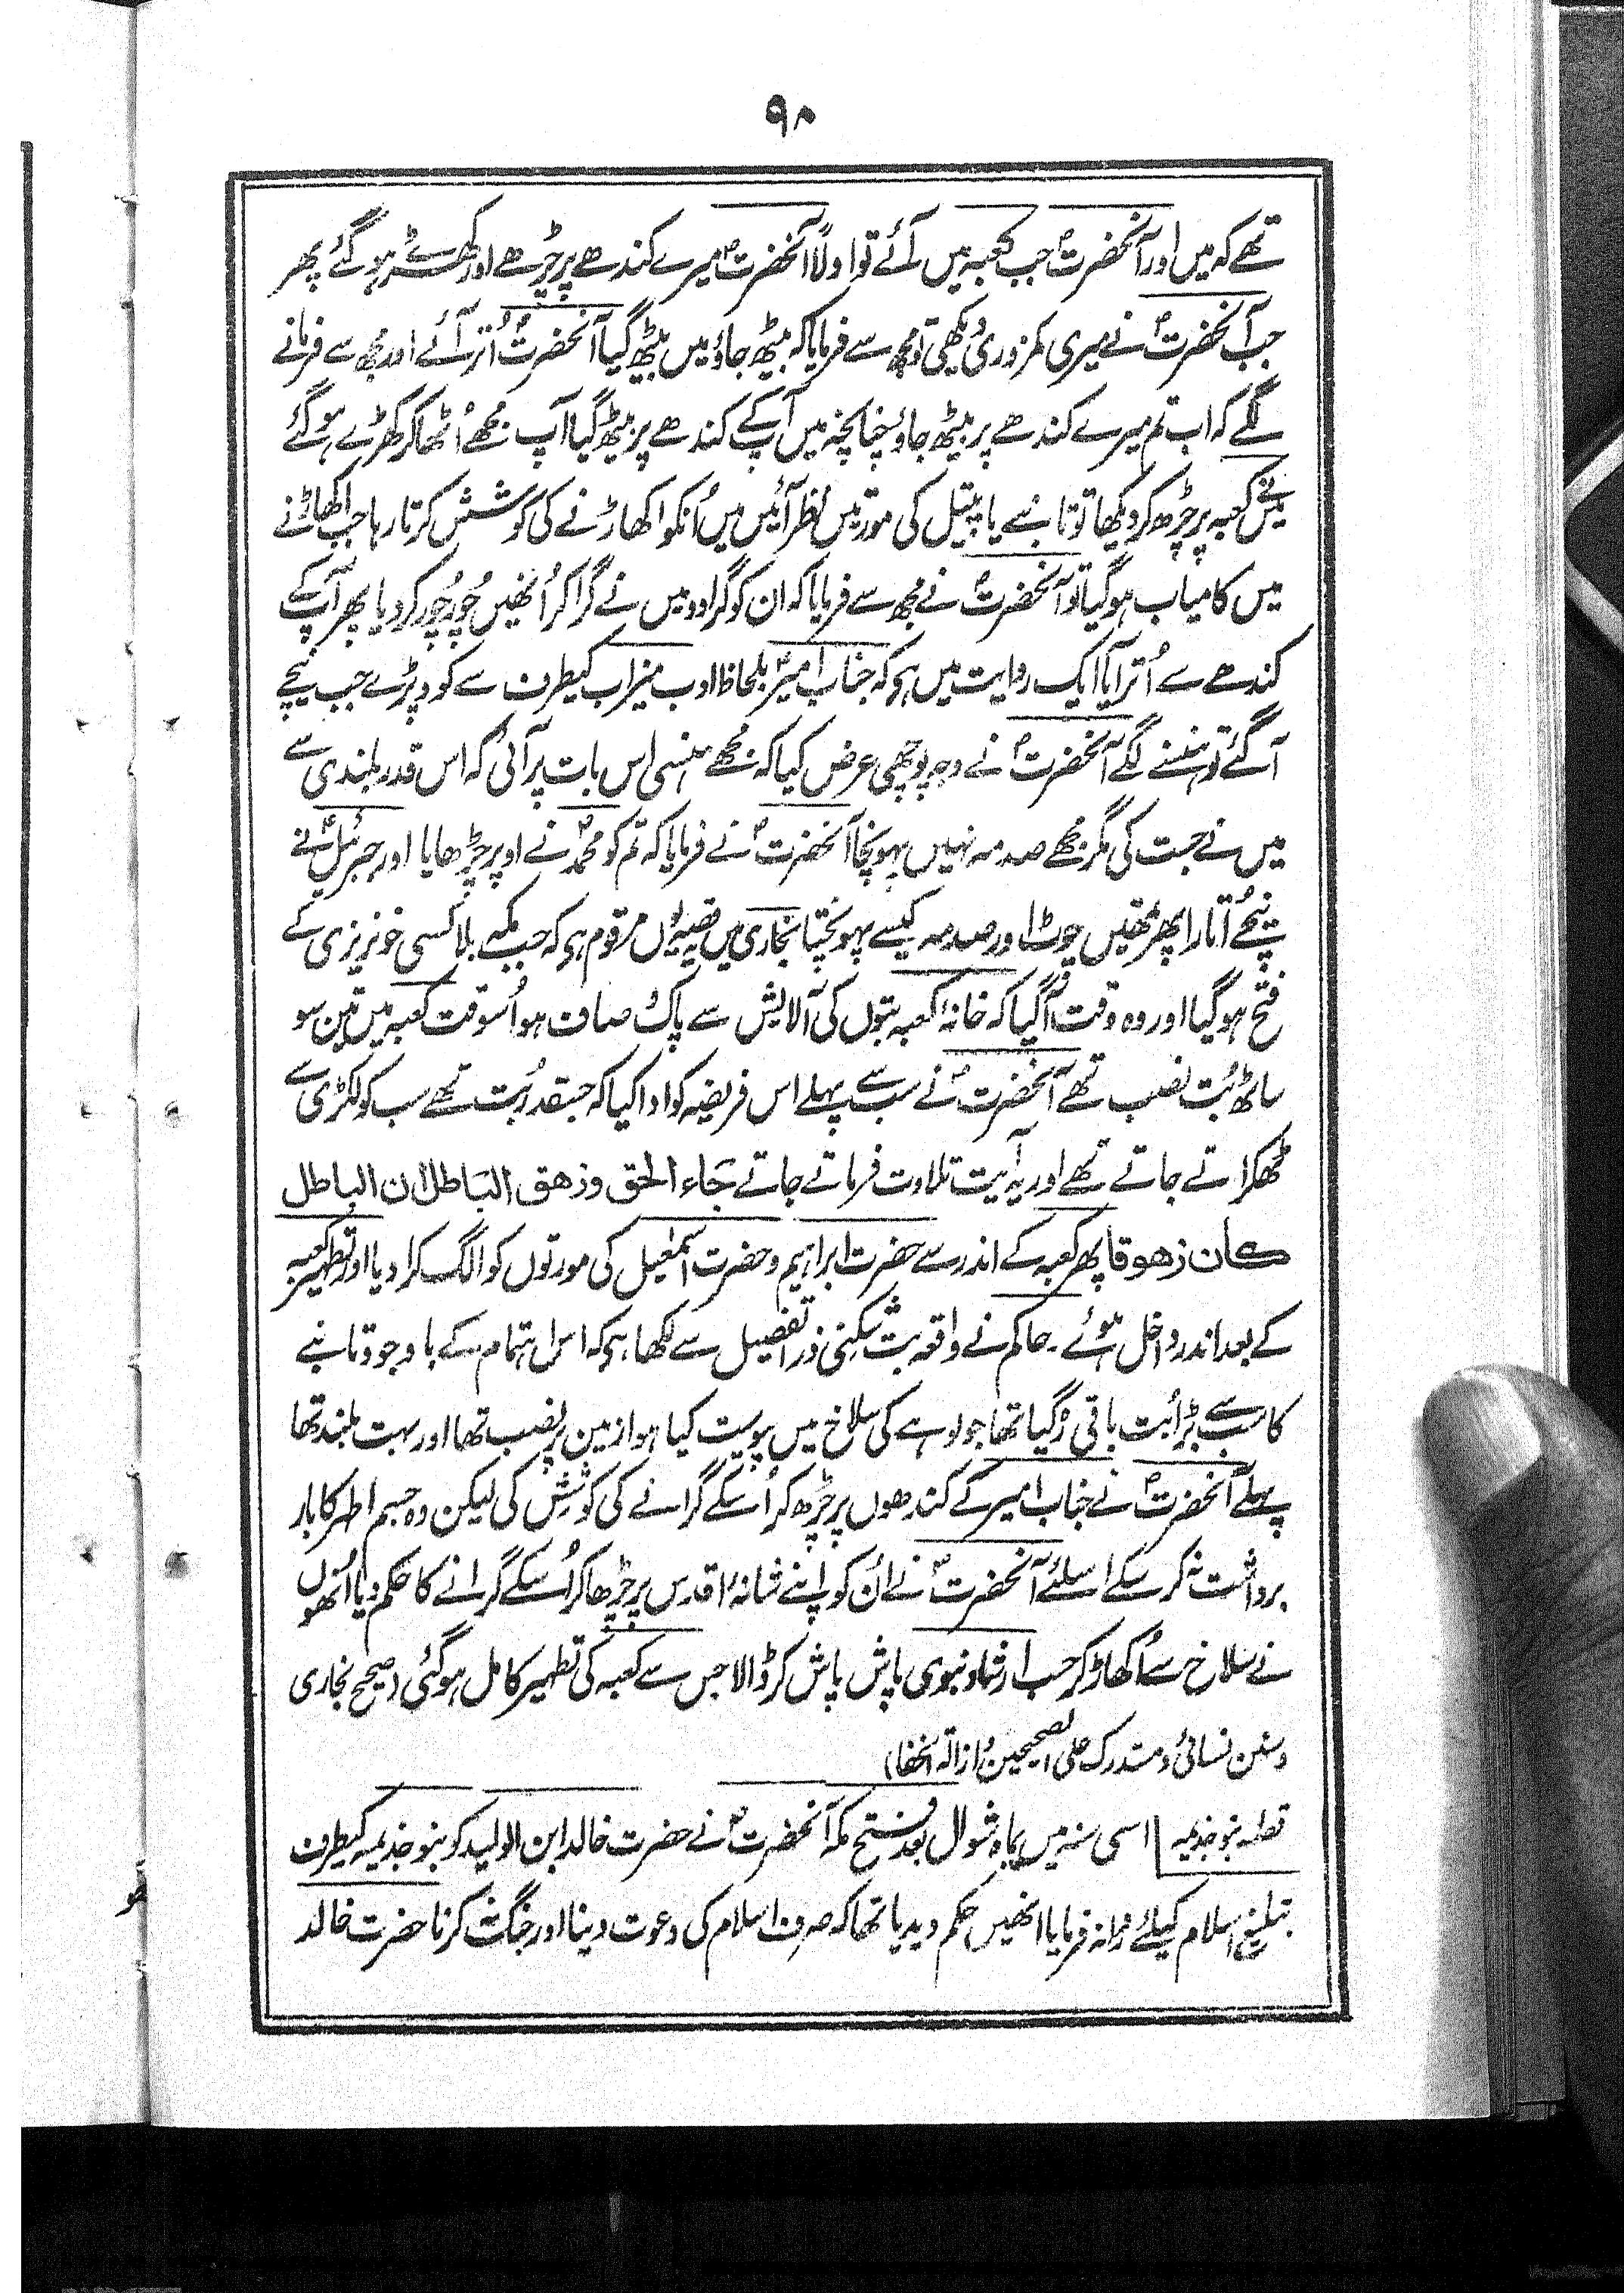 ۹۸
تھے کہ میں اور آنحضرتؐ جب کعبہ میں آئے تو اولاً آنحضرتؐ میرے کندھے پر چڑھے اور کھڑے ہو گئے پھر
جب آنحضرتؐ نے میری کمزوری دیکھی تو مجھ سے فرمایا کہ بیٹھ جاؤ میں بیٹھ گیا آنحضرتؐ اُتر آئے اور مجھ سے فرمانے
لگے کہ اب تم میرے کندھے پر بیٹھ جاؤ چنانچہ میں آپ کے کندھے پر بیٹھ گیا آپ مجھے اُٹھا کر کھڑے ہو گئے
میں نے کعبہ پر چڑھ کر دیکھا تو تانبے یا پیتل کی مورتیں نظر آئیں میں اُنکو اکھاڑنے کی کوشش کرتا رہا جب اکھاڑنے
میں کامیاب ہو گیا تو آنحضرتؐ نے مجھ سے فرمایا کہ ان کو گرا دو میں نے گرا کر اُنھیں چُور چُور کر دیا پھر آپ کے
کندھے سے اُتر آیا ایک روایت میں ہی کہ جناب امیرؑ بلحاظ ادب میزاب کیطرف سے کود پڑے جب نیچے
آ گئے تو ہنسنے لگے آنحضرتؐ نے وجہ پوچھی عرض کیا کہ مجھے ہنسی اس بات پر آئی کہ اس قدر بلندی سے
میں نے جست کی مگر مجھے صدمہ نہیں پہونچا آنحضرتؐ نے فرمایا کہ تم کو محمدؐ نے اوپر چڑھایا اور جبرئیلؑ نے
نیچے اُتارا پھر تمھیں چوٹ اور صدمہ کیسے پہونچتا بخاری میں قصہ یوں مرقوم ہی کہ جب مکہ بلا کسی خونریزی کے
فتح ہو گیا اور وہ وقت آ گیا کہ خانۂ کعبہ بتوں کی آلایش سے پاک صاف ہو اُسوقت کعبہ میں تین سو
ساٹھ بُت نصب تھے آنحضرتؐ نے سب سے پہلے اس فریضہ کو ادا کیا کہ جسقدر بُت تھے سب کو لکڑی سے
ٹھکراتے جاتے تھے اور یہ آیت تلاوت فرماتے جاتے جَاء الحق وزھق البَاطل ان الباطل
کان زھوقا پھر کعبہ کے اندر سے حضرت ابراہیم و حضرت اسمٰعیل کی مورتوں کو الگ کرا دیا اور تطہیر کعبہ
کے بعد اندر داخل ہوئے ۔ حاکم نے واقعہ بت شکنی ذرا تفصیل سے لکھا ہی کہ اس اہتمام کے باوجود تانبے
کا سب سے بڑا بُت باقی رہ گیا تھا جو لوہے کی سلاخ میں پیوست کیا ہوا زمین پر نصب تھا اور بہت بلند تھا
پہلے آنحضرتؐ نے جناب امیر کے کندھوں پر چڑھ کر اُسکے گرانے کی کوشش کی لیکن وہ جسم اطہر کا بار
برداشت نہ کر سکے اسلئے آنحضرتؐ نے اُن کو اپنے شانۂ اقدس پر چڑھا کر اُسکے گرانے کا حکم دیا اُنھوں
نے سلاخ سے اُکھاڑ کر حسب ارشاد نبوی پاش پاش کر ڈالا جس سے کعبہ کی تطہیر کامل ہو گئی (صحیح بخاری
و سنن نسائی و مستدرک علی الصحیحین و ازالۃ الخفا)
اسی سنہ میں بماہ شوال بعد فتح مکہ آنحضرتؐ نے حضرت خالد ابن الولید کو بنو جذیمہ کیطرف
تبلیغ اسلام کیلئے روانہ فرمایا انھیں حکم دیدیا تھا کہ صرف اسلام کی دعوت دینا اور جنگ نہ کرنا حضرت خالد